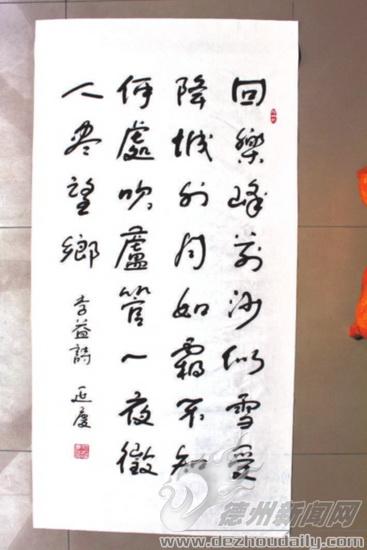 回樂峰前沙似雪受
降城外月如霜不知
何處吹蘆管一夜徵
人盡望鄉 李益詩 延慶
德州新闻网
www.dezhoudaily.com